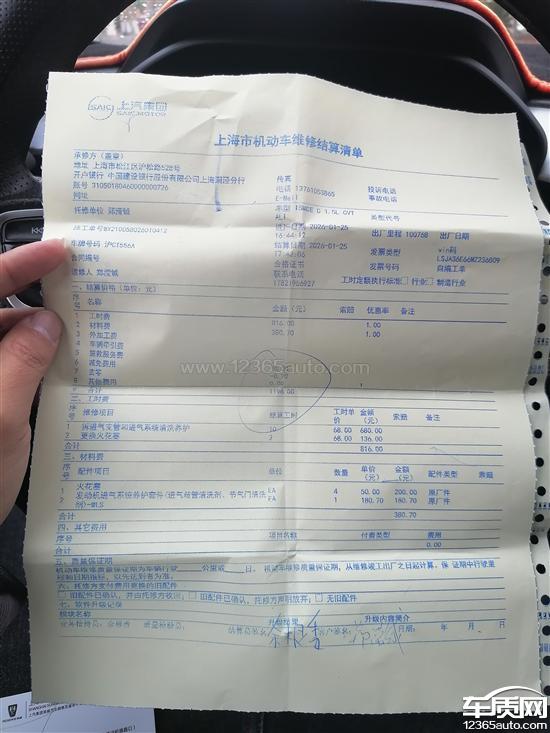 SAIC 上汽集团
SAIC MOTOR
上海市机动车维修结算清单
承修方（盖章）
地址 上海市松江区沪松路528号 传真
开户银行 中国建设银行股份有限公司上海洞泾分行 电话 13761051865 投诉电话
账号 31050180460000000726 E-Mail 事故电话
网址 车型 1.5L CVT 类型代号
托修单位
进厂日期 2026-01-25 出厂里程 100768 出厂日期
施工单号 16:44:12
车牌号码 结算日期 2026-01-25 发票类型 vin码
合同编号 17:43:06
合格证书 自编工单
送修人 联系电话 工时定额执行标准 □ 行业 □ 制造行业
17821956927
一、结算价格（单位：元）
序号 名称 金额（元） 索赔 优惠率 备注
1 工时费 816.00 1.00
2 材料费 380.70 1.00
3 外加工费
4 车辆牵引费
5 施救服务费
6 减免费用
7 去零 -0.70
8 其他费用 0.00 1
9 合计 1196.00
二、工时费
序号 维修项目 结算工时 工时单价 金额（元） 索赔 备注
1 拆进气支管和进气系统清洗养护 10 68.00 680.00
2 更换火花塞 2 68.00 136.00
合计 816.00
三、材料费
序号 配件项目 单位 数量 单价（元） 金额（元） 配件类型 索赔
1 火花塞 EA 4 50.00 200.00 原厂件
2 发动机进气系统养护套件(进气歧管清洗剂、节气门清洗剂)-MLS EA 1 180.70 180.70 原厂件
合计 380.70
四、其它费用
序号 项目名称 付费类型 费用
合计 0.00
五、质量保证期
机动车维修质量保证期为车辆行驶 公里或 日。机动车维修质量保证期，从维修竣工出厂之日起计算，保 证期中行驶里程和日期指标，以先达到者为准。
六、托修方支付费用更换的旧配件
□ 旧配件已确认，并由托修方收回；□ 旧配件已确认，托修方声明放弃；□ 无旧配件
七、软件升级记录
模块名称 升级结果 升级内容简介
日期： 年 月 日
www.12365auto.com
车质网
12365auto.com